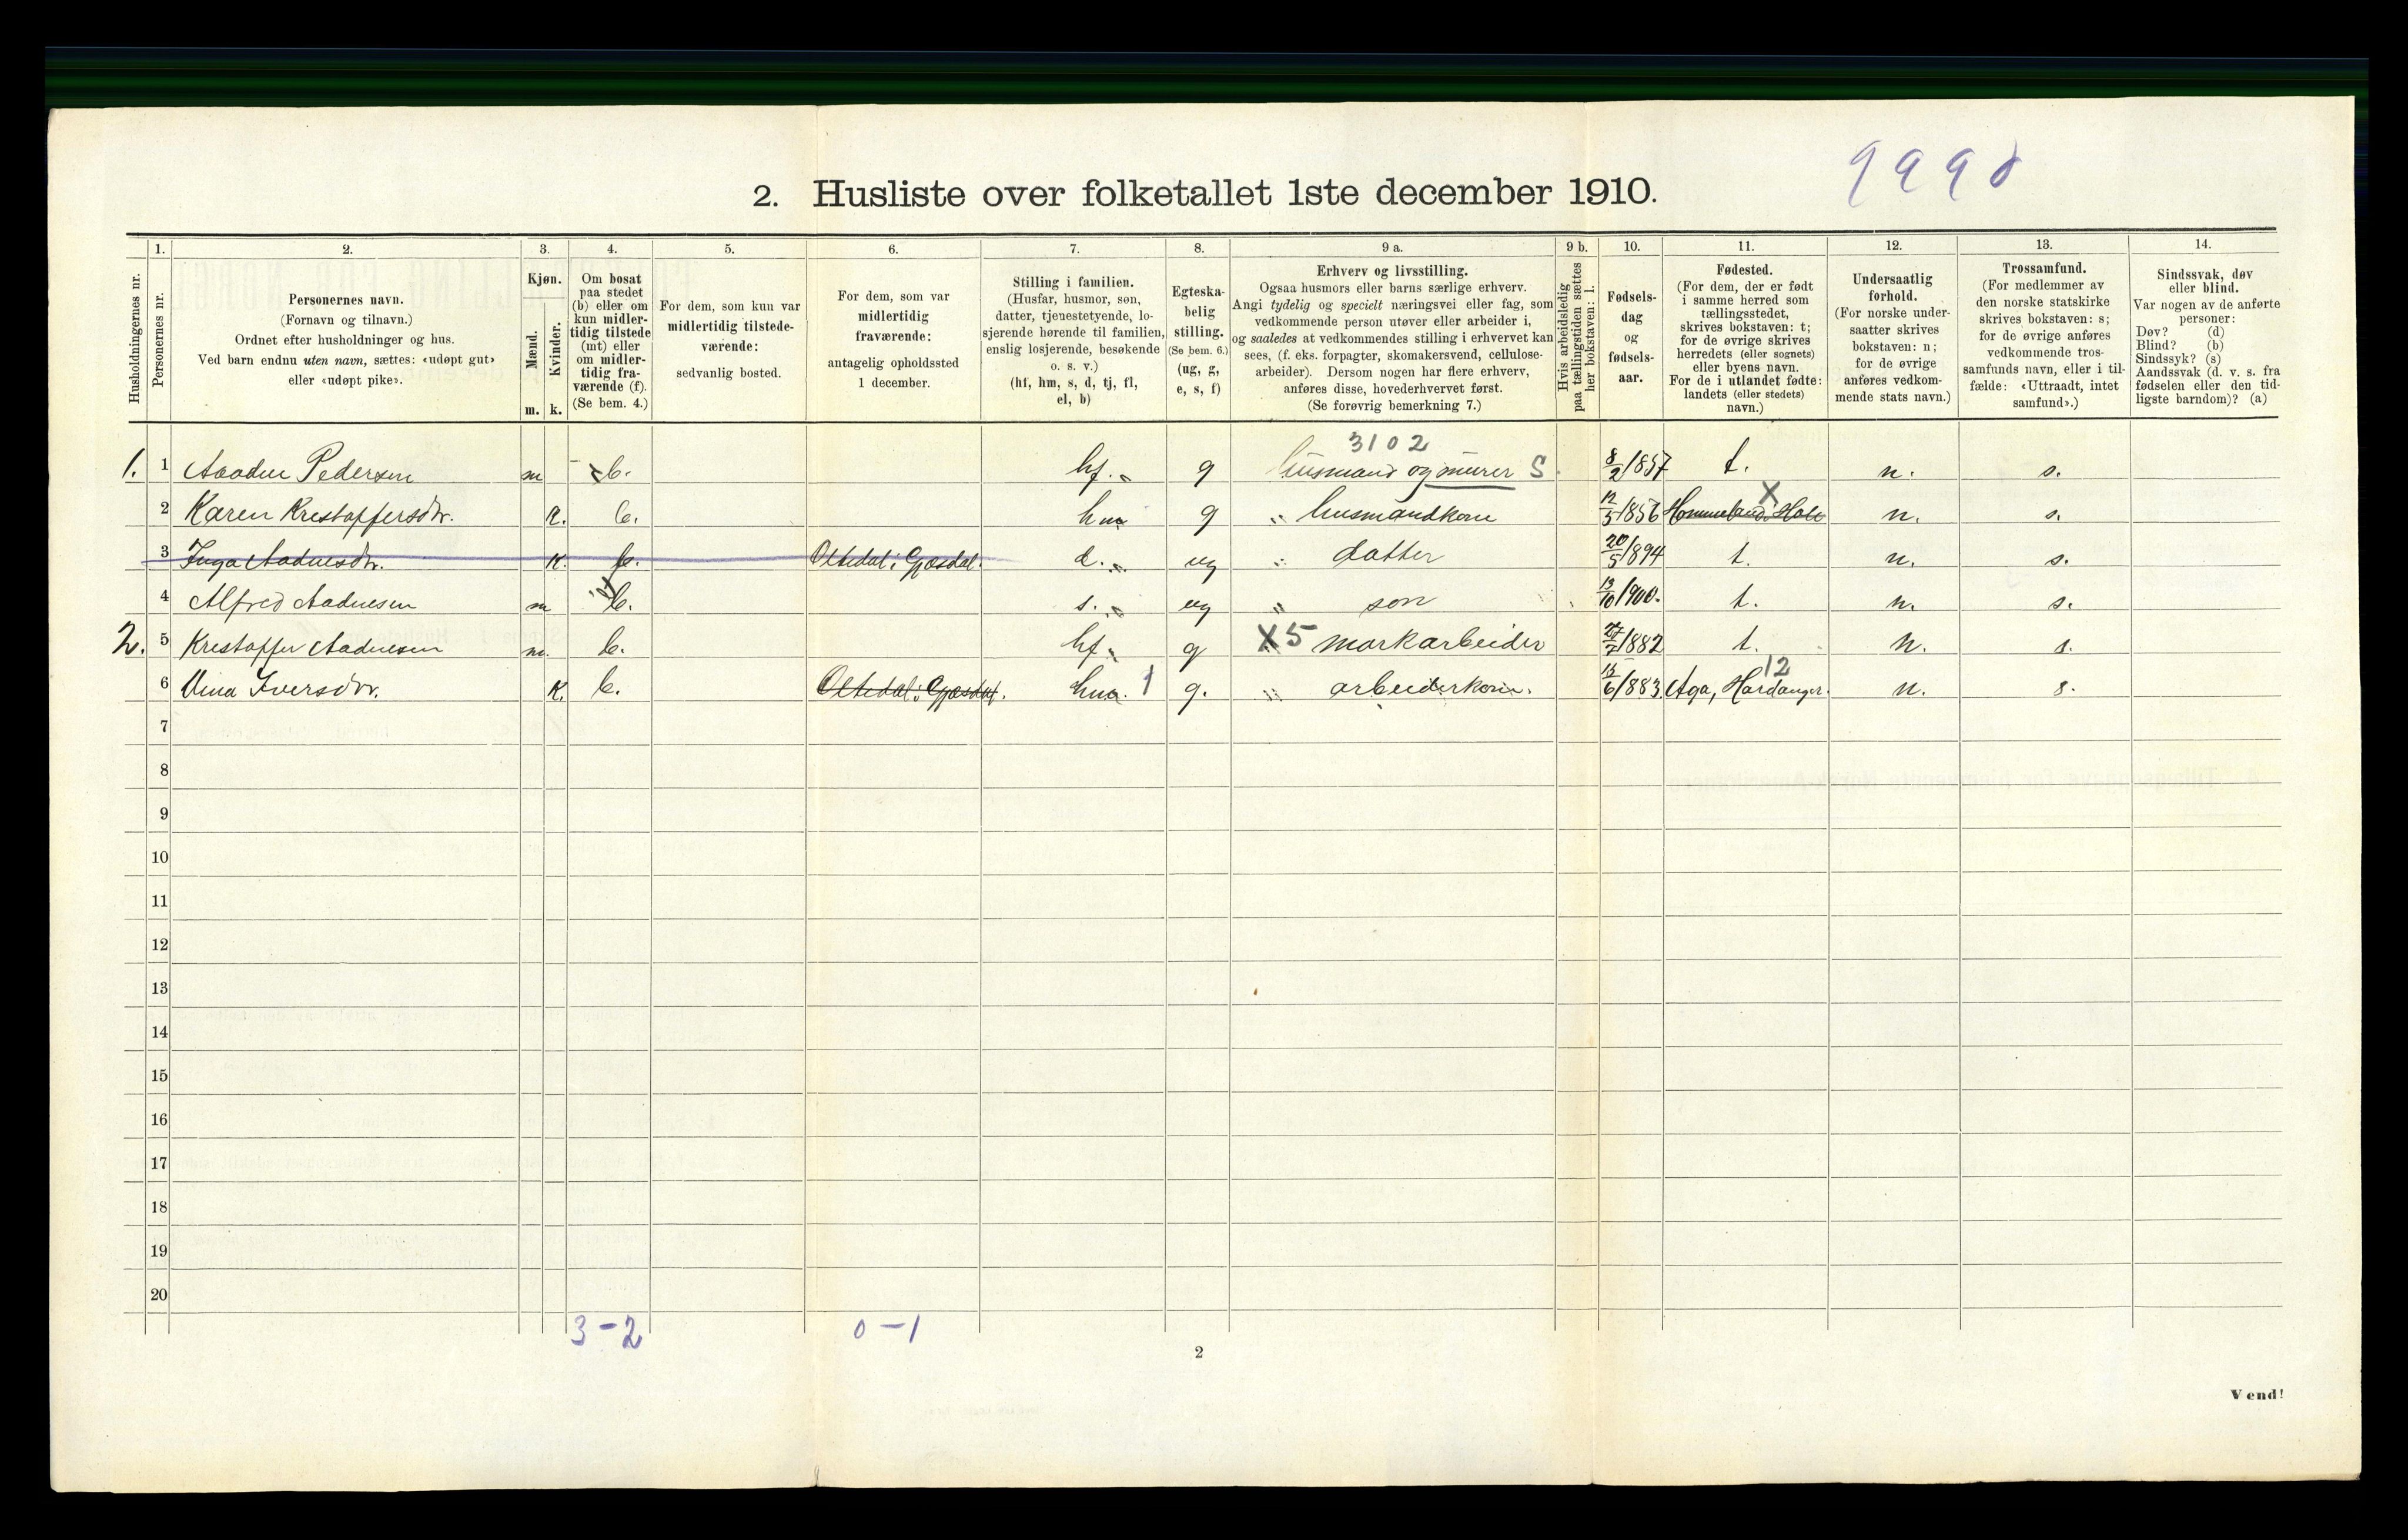 9990
2. Husliste over folketallet 1ste december 1910.
Husholdningernes nr.
1. Personernes nr.
2. Personernes navn.
(Fornavn og tilnavn.)
Ordnet efter husholdninger og hus.
Ved barn endnu uten navn, sættes: «udøpt gut»
eller «udøpt pike».
3. Kjøn.
Mænd. Kvinder.
m. k.
4. Om bosat
paa stedet
(b) eller om
kun midler-
tidig tilstede
(mt) eller
om midler-
tidig fra-
værende (f).
(Se bem. 4.)
5. For dem, som kun var
midlertidig tilstede-
værende:
sedvanlig bosted.
6. For dem, som var
midlertidig
fraværende:
antagelig opholdssted
1 december.
7. Stilling i familien.
(Husfar, husmor, søn,
datter, tjenestetyende, lo-
sjerende hørende til familien,
enslig losjerende, besøkende
o. s. v.)
(hf, hm, s, d, tj, fl,
el, b)
8. Egteska-
belig
stilling.
(Se bem. 6.)
(ug, g,
e, s, f)
9 a. Erhverv og livsstilling.
Ogsaa husmors eller barns særlige erhverv.
Angi tydelig og specielt næringsvei eller fag, som
vedkommende person utøver eller arbeider i,
og saaledes at vedkommendes stilling i erhvervet kan
sees, (f. eks. forpagter, skomakersvend, cellulose-
arbeider). Dersom nogen har flere erhverv,
anføres disse, hovederhvervet først.
(Se forøvrig bemerkning 7.)
9 b. Hvis arbeidsledig
paa tællingstiden sættes
her bokstaven: l.
10. Fødsels-
dag
og
fødsels-
aar.
11. Fødested.
(For dem, der er født
i samme herred som
tællingsstedet,
skrives bokstaven: t;
for de øvrige skrives
herredets (eller sognets)
eller byens navn.
For de i utlandet fødte:
landets (eller stedets)
navn.)
12. Undersaatlig
forhold.
(For norske under-
saatter skrives
bokstaven: n;
for de øvrige
anføres vedkom-
mende stats navn.)
13. Trossamfund.
(For medlemmer av
den norske statskirke
skrives bokstaven: s;
for de øvrige anføres
vedkommende tros-
samfunds navn, eller i til-
fælde: «Uttraadt, intet
samfund».)
14. Sindssvak, døv
eller blind.
Var nogen av de anførte
personer:
Døv? (d)
Blind? (b)
Sindssyk? (s)
Aandssvak (d. v. s. fra
fødselen eller den tid-
ligste barndom)? (a)
3102
1. 1 Aadne Pedersen m b. hf. g husmand og murer S 8/2 1857 t. n. s.
X
2 Karen Krestoffersdtr. k. b. hm g " husmandkone 12/5 1856 Hommeland Hole n. s.
3 Inga Aadnesdtr. K. b. Oltedal i Gjæsdal. d. ug " datter 20/5 1894 t. n. s.
4 Alfred Aadnesen m b. s. ug " søn 13/10 1900. t. n. s.
2. 5 Krestoffer Aadnesen m. b. hf. g X5 markarbeider 27/7 1882 t. n. s.
12
6 Unna Iversdtr. K. b. Oltedal i Gjæsdal. hm. 1 g. " arbeiderkone. 15/6 1883. Aga, Hardanger. n. s.
7
8
9
10
11
12
13
14
15
16
17
18
19
20
3-2 0-1
2
Vend!